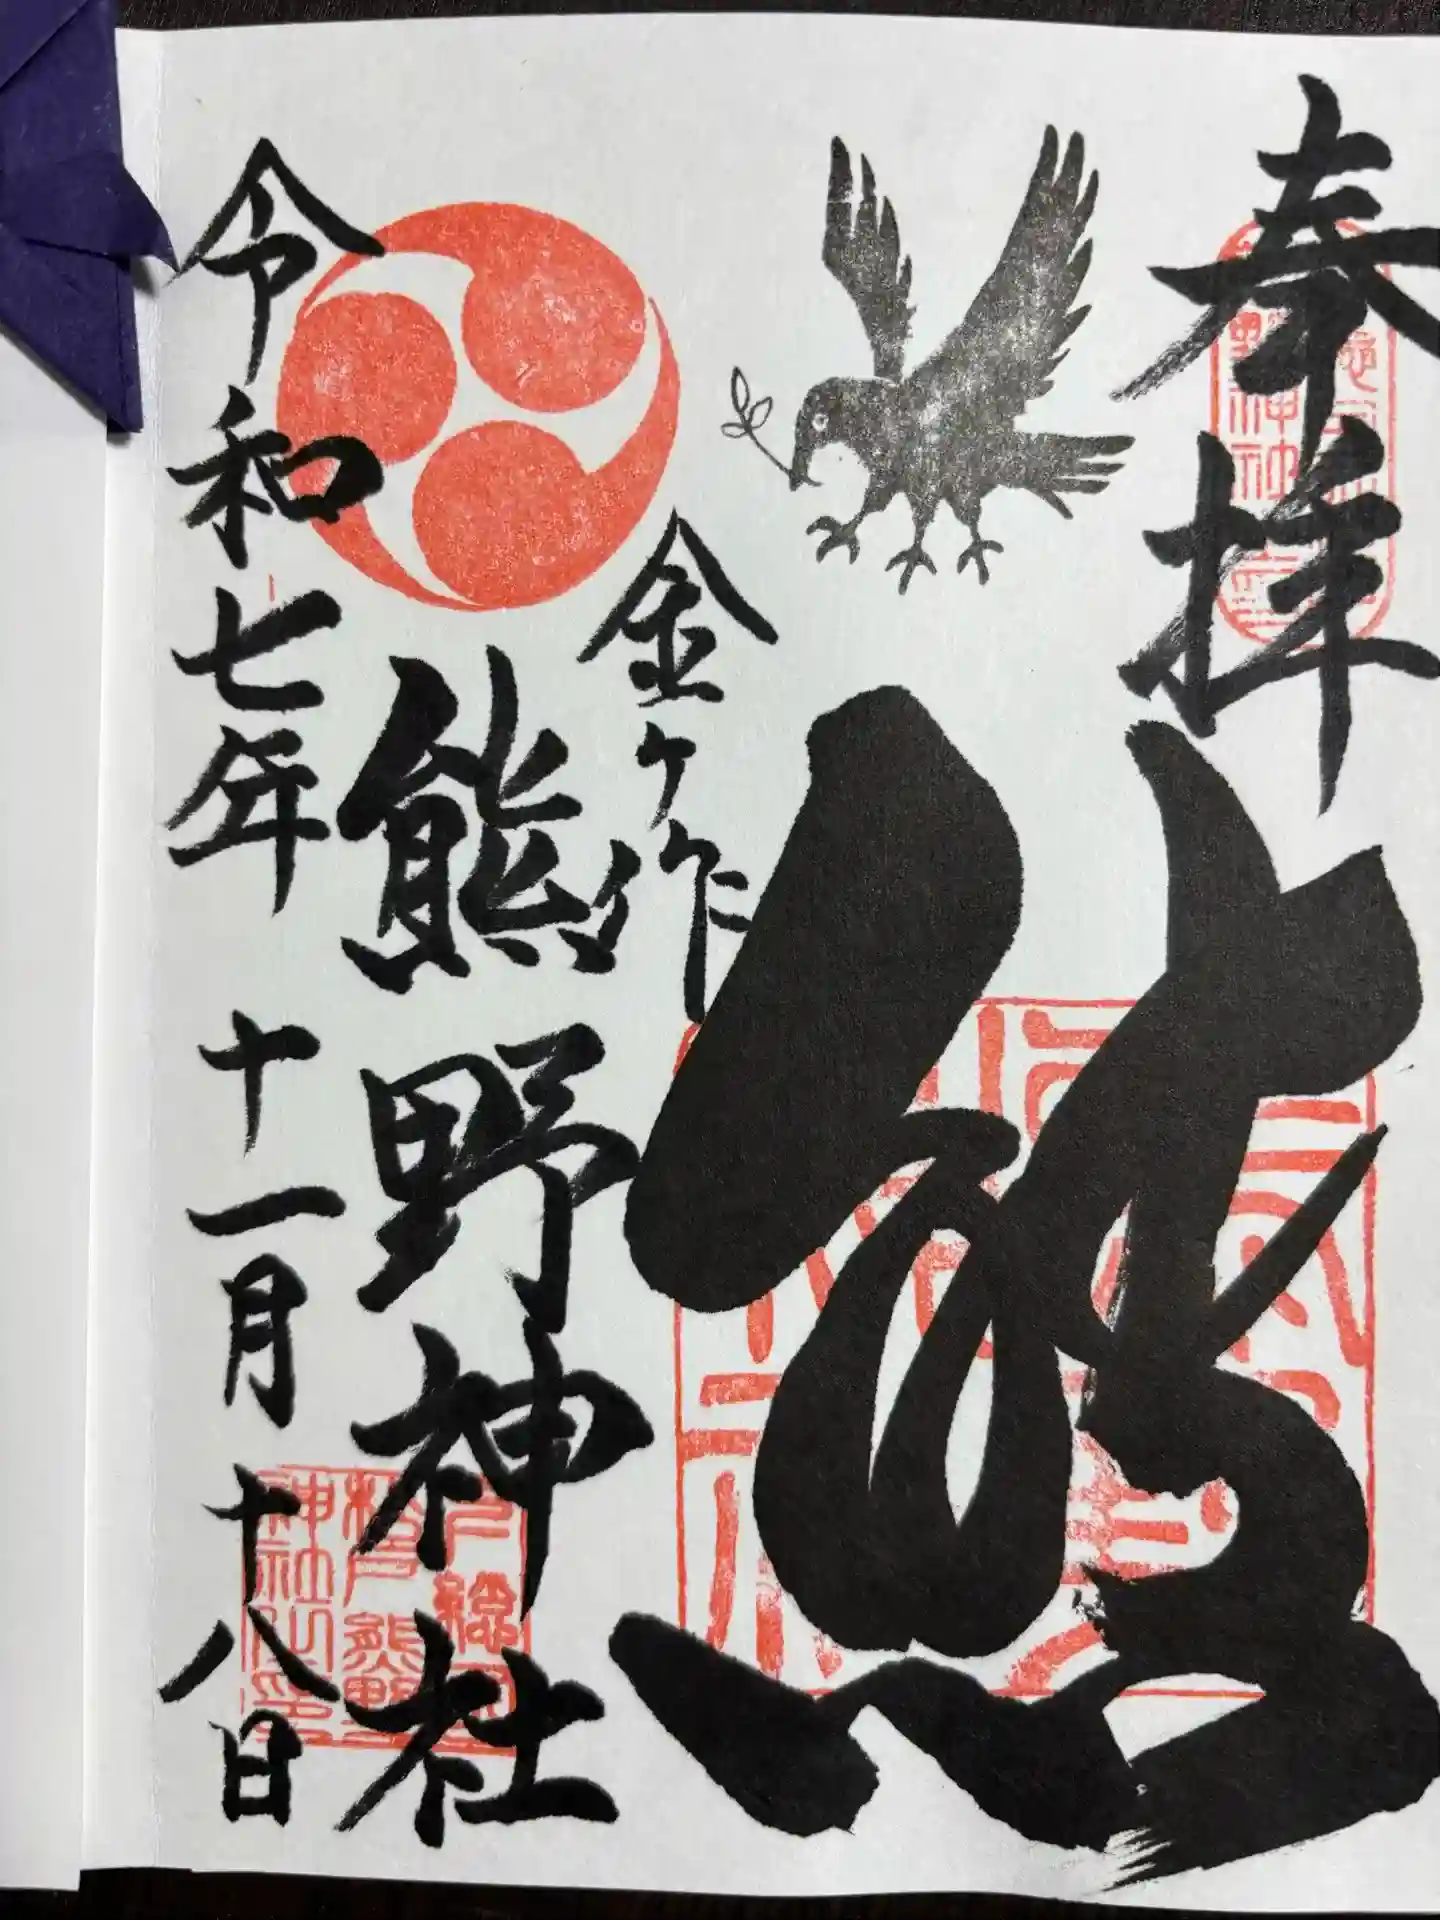 奉拝
熊
金ヶ作
熊野神社
令和七年 十一月 十八日